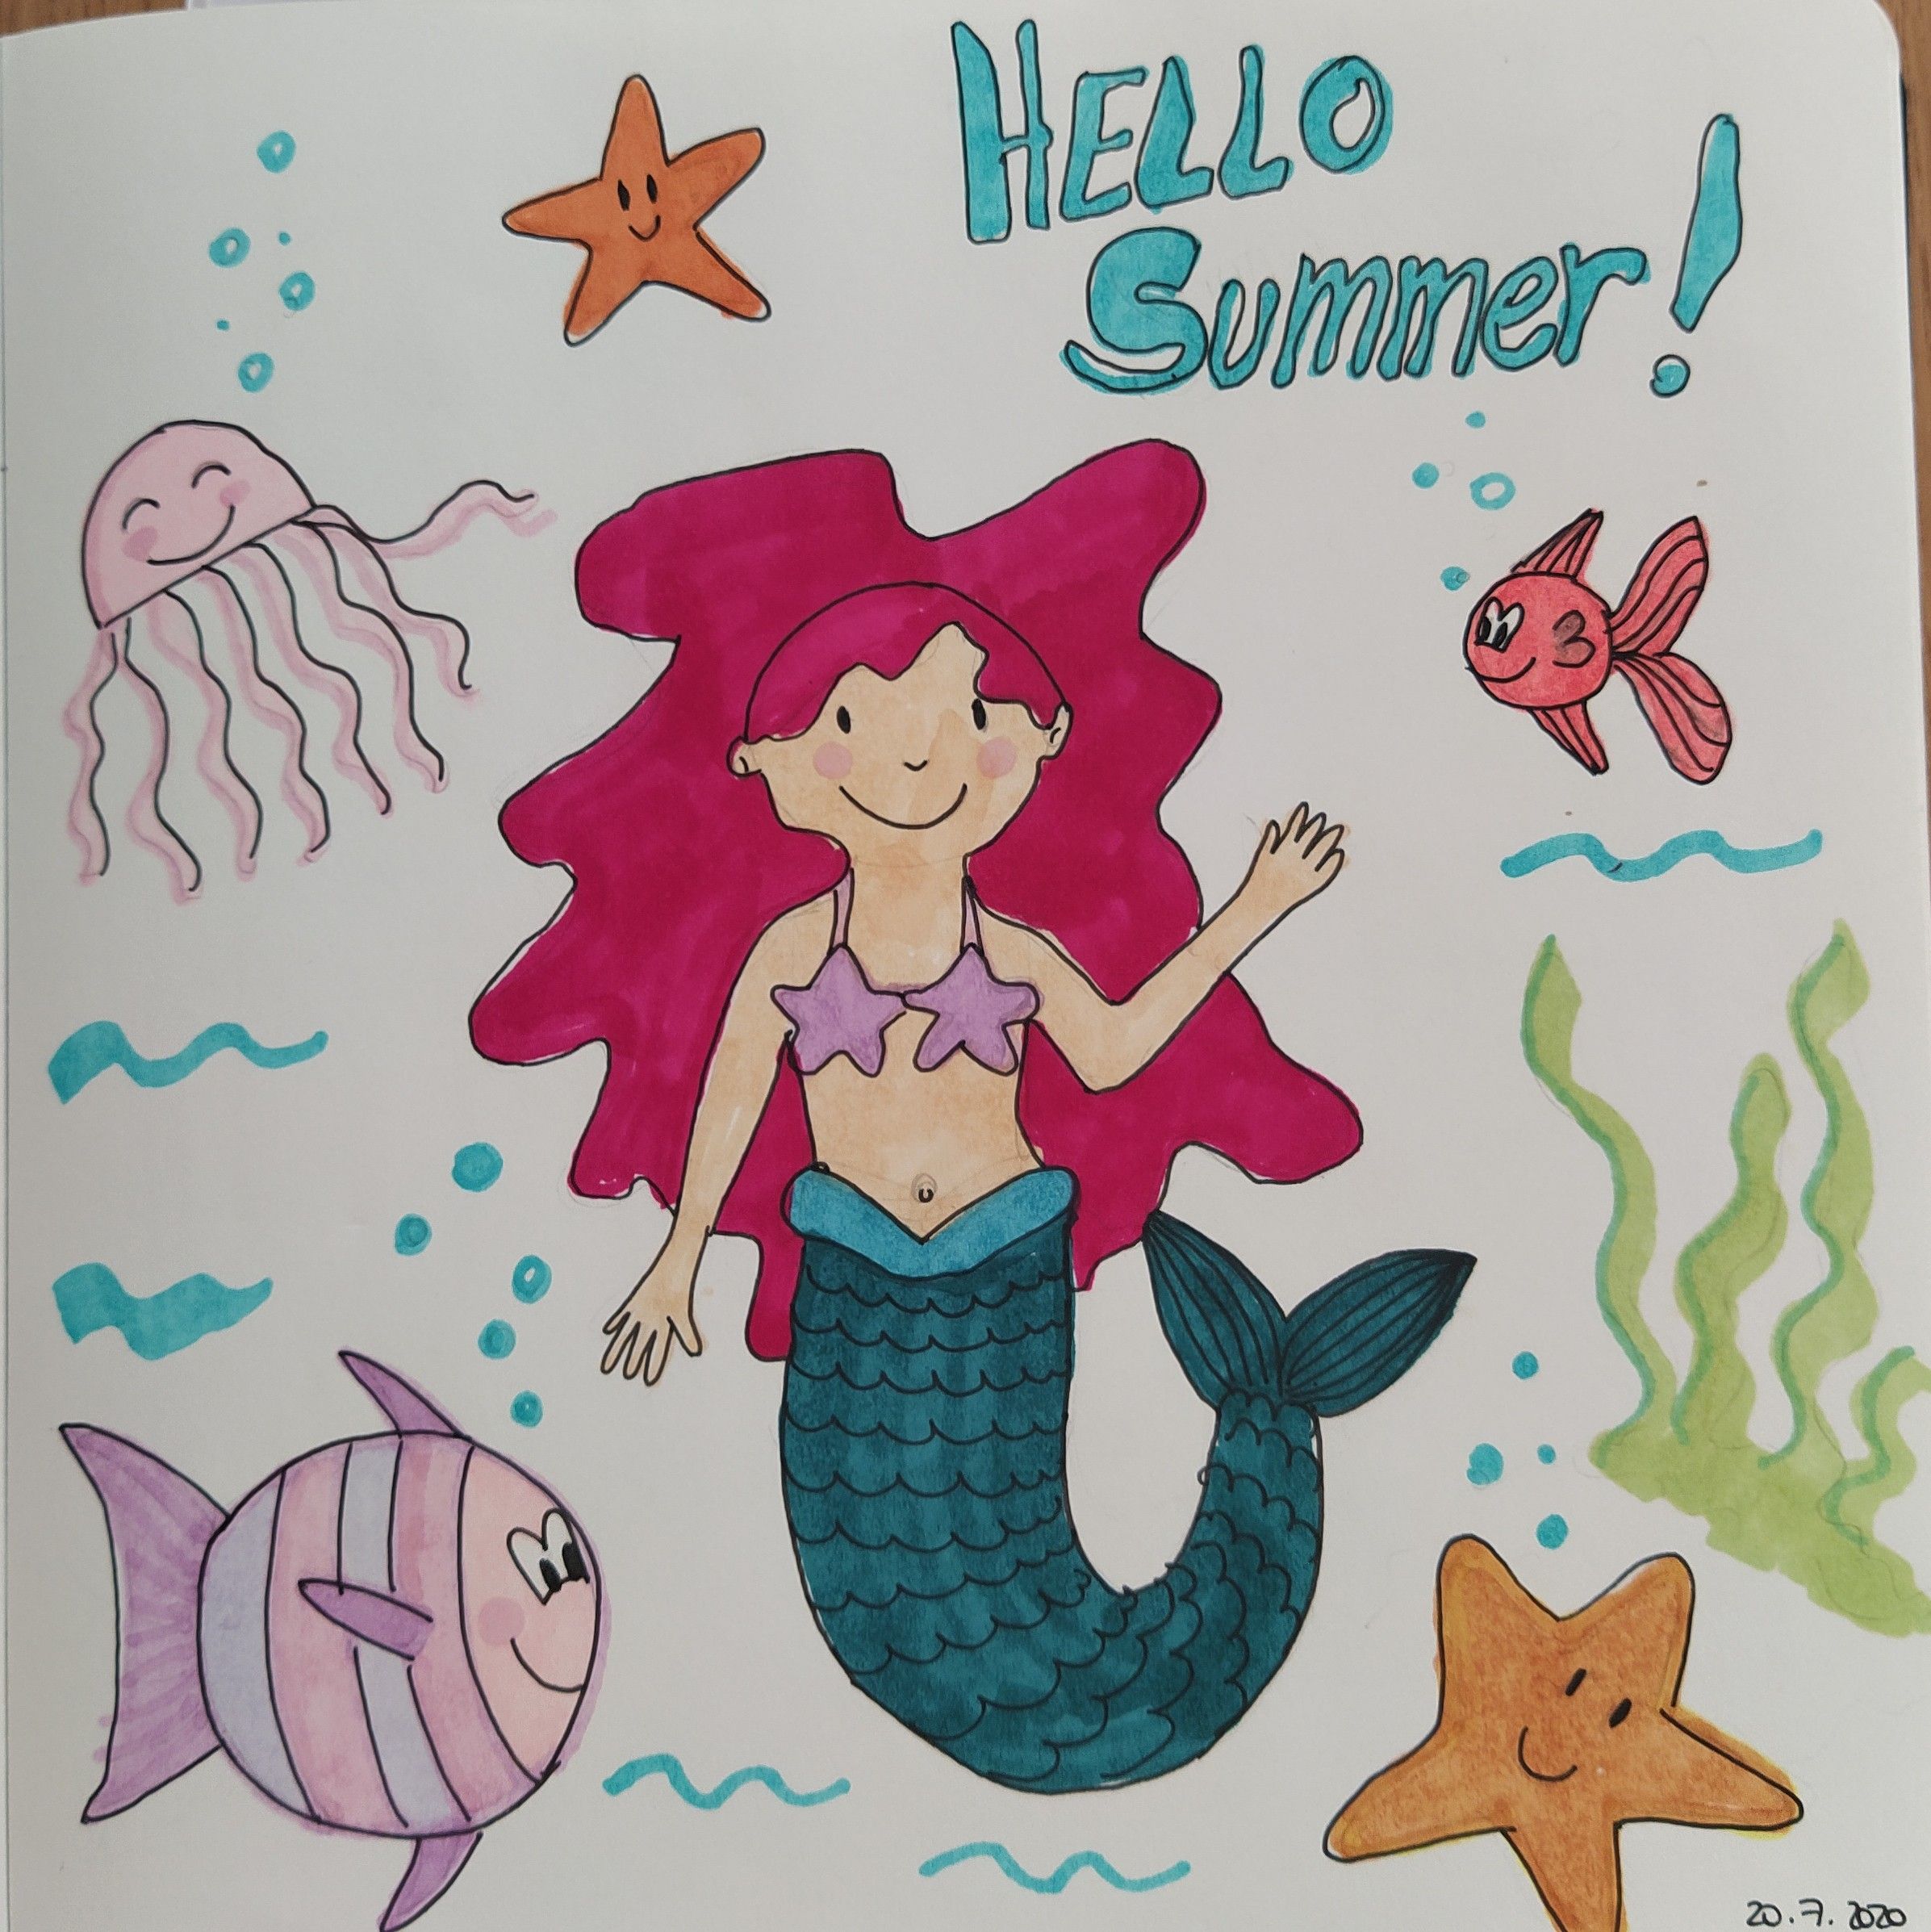 HELLO
Summer!
20.7.2020